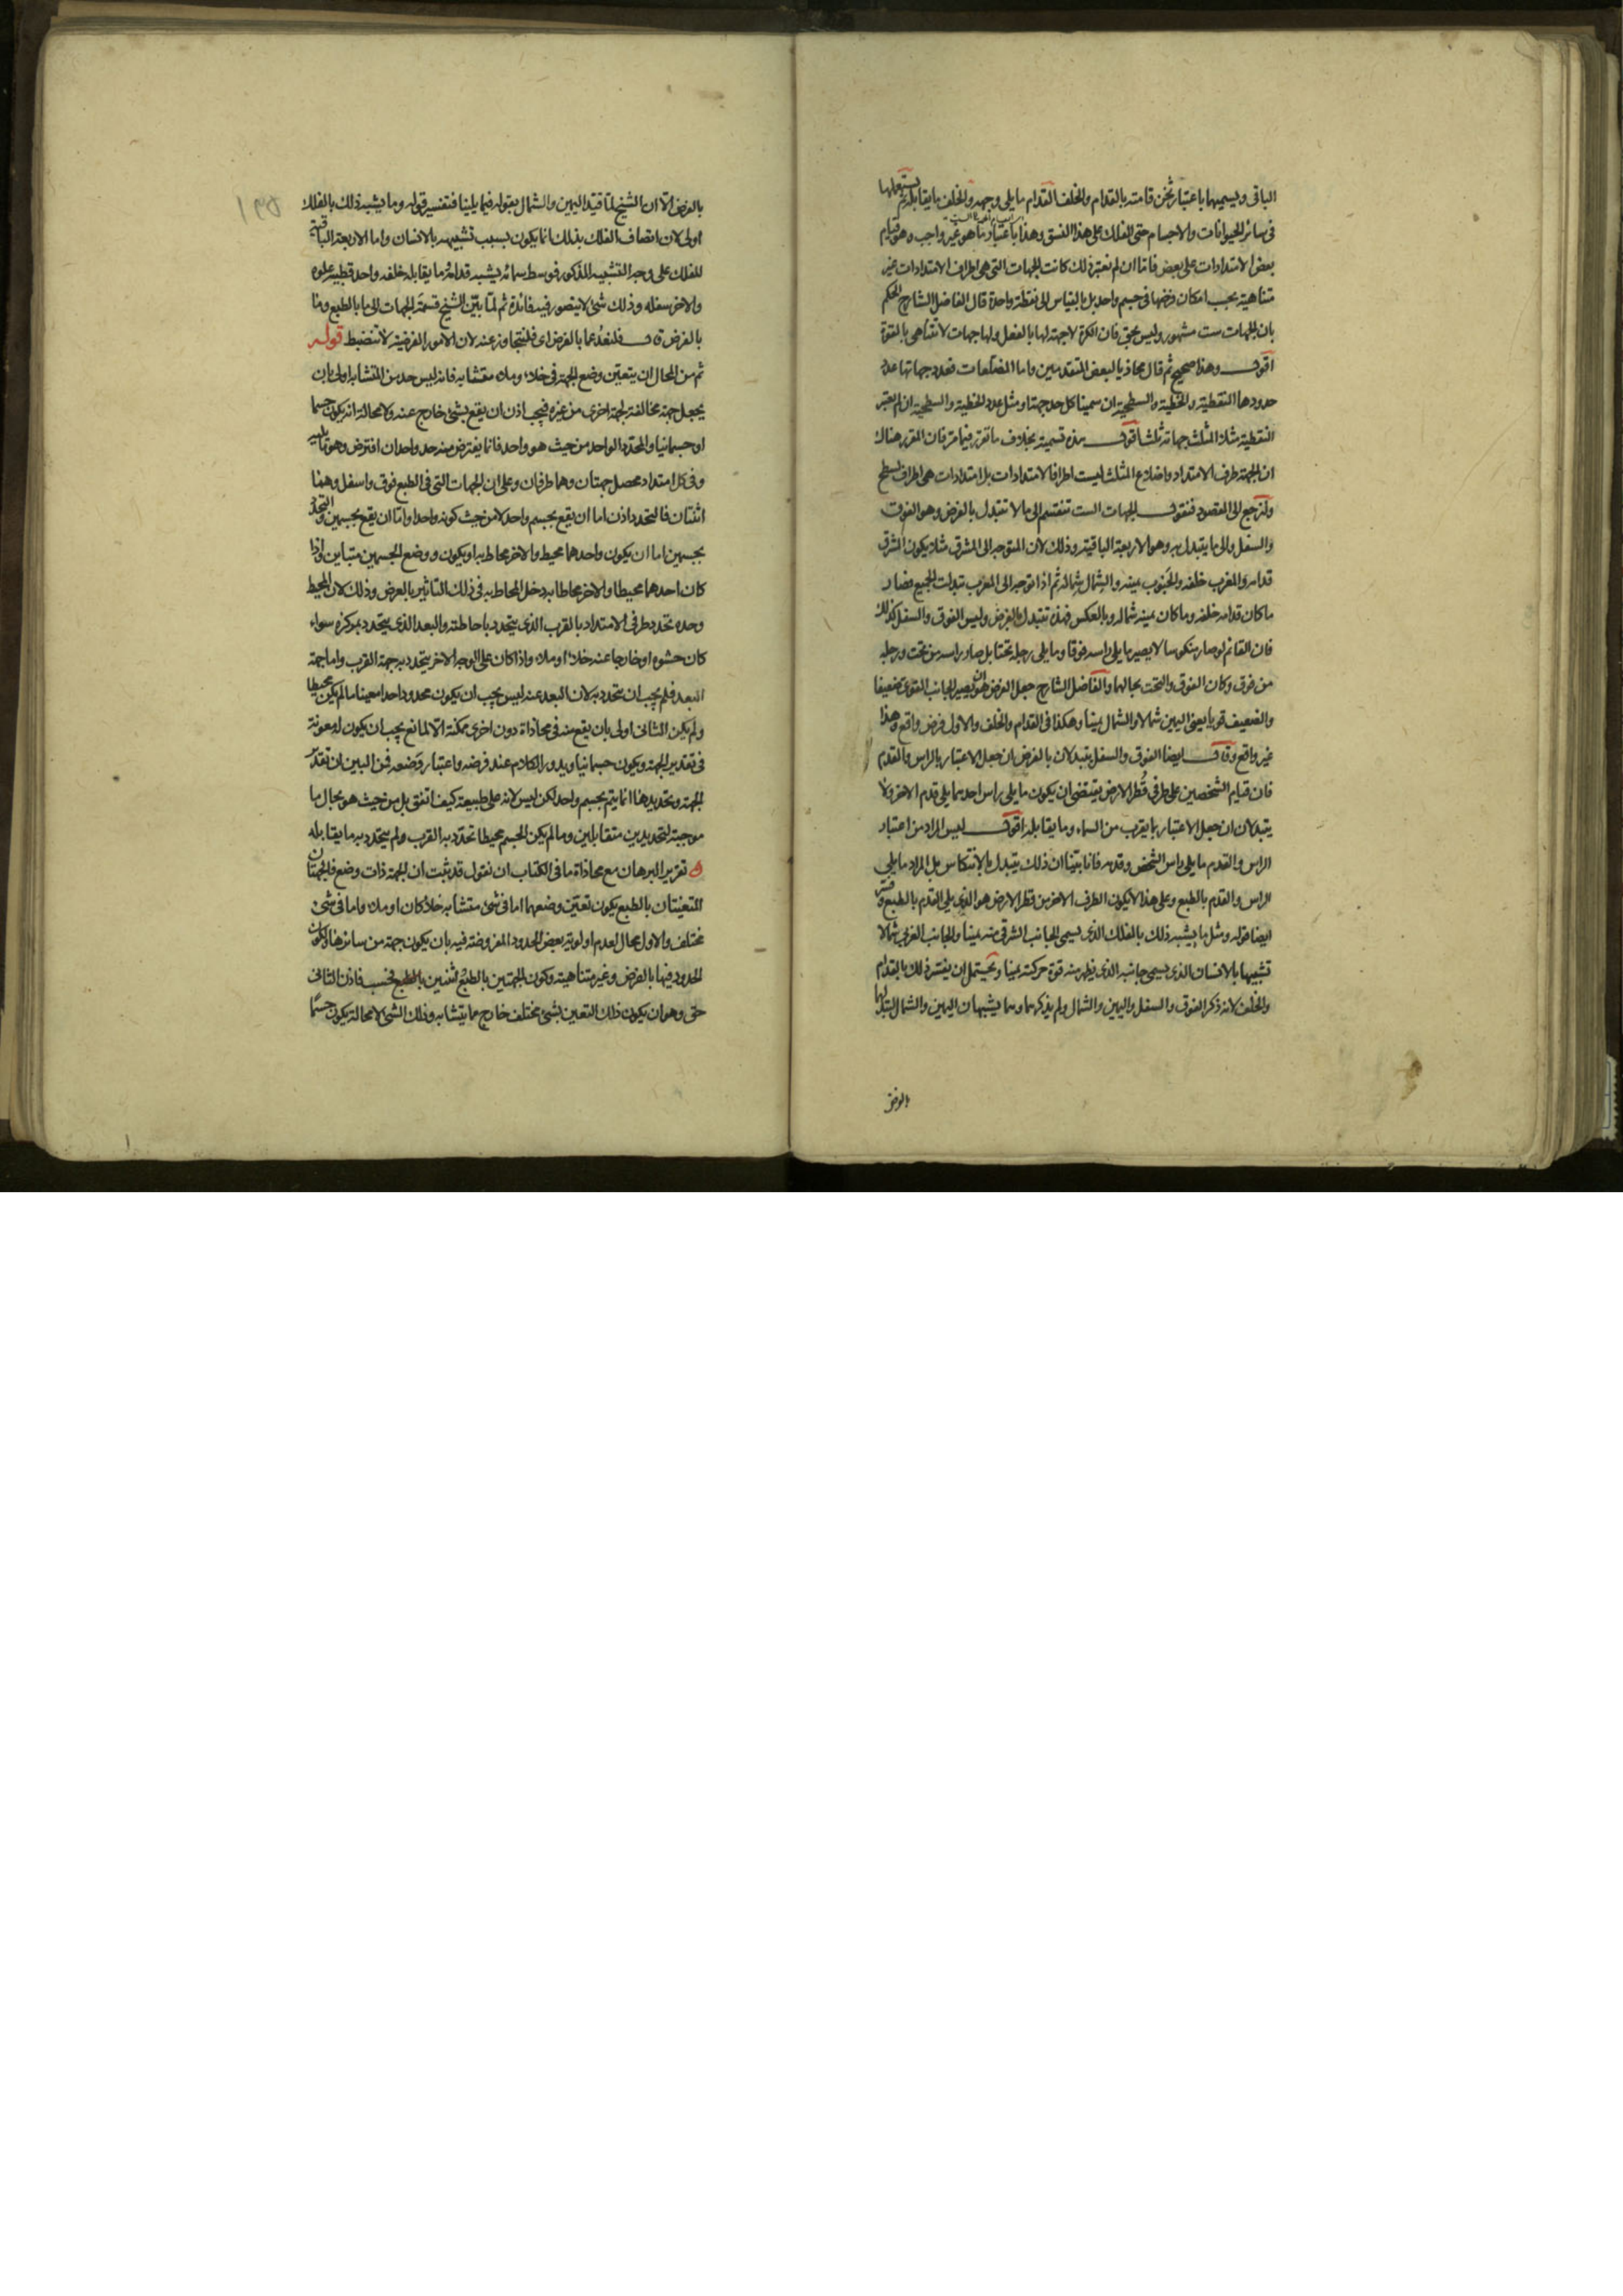 الباقى ويسميهما باعتبار ثخن قامته بالقدام والخلف القدام ما يلى وجهه والخلف ما يقابله ثم يستعملها
فى سائر الحيوانات والاجسام حتى الفلك على هذا النسق وهذا باعتبار ما هو غير واجب وهو قيام
بعض الامتدادات على بعض فاما ان لم نعتبر ذلك كانت الجهات التى هى اطراف الامتدادات غير
متناهية بحسب امكان فرضها فى جسم واحد بل بالقياس الى نقطة واحدة قال الفاضل الشارح الحكم
بان الجهات ست مشهور وليس بحق فان الكرة لا جهة لها بالفعل ولها جهات لا تتناهى بالقوة
اقول وهذا صحيح ثم قال محاذيا لبعض المتقدمين واما المضلعات فعدد جهاتها عدد
حدودها النقطية والخطية والسطحية ان سمينا كل حد جهة او مثل عدد الخطية والسطحية ان لم نعتبر
النقطية مثلا المثلث جهاته ثلث اقول هذه تسمية بخلاف ما تقرر فيما مر فان المقرر هناك
ان الجهة طرف الامتداد واضلاع المثلث ليست اطرافا لامتدادات بل امتدادات هى اطراف لسطح
ولنرجع الى المقصود فنقول الجهات الست تنقسم الى ما لا تتبدل بالفرض وهو الفوق
والسفل والى ما يتبدل به وهو الاربعة الباقية وذلك لان المتوجه الى المشرق مثلا يكون المشرق
قدامه والمغرب خلفه والجنوب يمينه والشمال شماله ثم اذا توجه الى المغرب تبدلت الجميع فصار
ما كان قدامه خلفه وما كان يمينه شماله وبالعكس فهذه تتبدل بالفرض وليس الفوق والسفل كذلك
فان القائم لو صار منكوسا لا يصير ما يلى راسه فوقا وما يلى رجله تحتا بل صار راسه من تحت ورجله
من فوق وكان الفوق والتحت بحالهما والفاضل الشارح جعل الفرض هو ان يصير الجانب القوى ضعيفا
والضعيف قويا يعنى اليمين شمالا والشمال يمينا وهكذا فى القدام والخلف والاول فرض واقع وهذا
غير واقع وقال ايضا الفوق والسفل يتبدلان بالفرض ان جعل الاعتبار بالراس والقدم
فان قيام الشخصين على طرفى قطر الارض يقتضى ان يكون ما يلى راس احدهما يلى قدم الاخر ولا
يتبدلان ان جعل الاعتبار بما يقرب من السماء وما يقابله اقول ليس المراد من اعتبار
الراس والقدم ما يلى راس الشخص وقدمه فانا بينا ان ذلك يتبدل بالانتكاس بل المراد ما يلى
الراس والقدم بالطبع وعلى هذا لا يكون الطرف الاخر من قطر الارض هو الذى يلى القدم بالطبع وفسر
ايضا قوله ومثل ما يشبه ذلك بالفلك الذى يسمى الجانب الشرقى منه يمينا والجانب الغربى شمالا
تشبيها بالانسان الذى يسمى جانبه الذى يظهر منه قوة حركته يمينا ويحتمل ان يفسر ذلك بالقدام
والخلف لانه ذكر الفوق والسفل واليمين والشمال ولم يذكرهما وهما يشبهان اليمين والشمال لتبدلهما
بالفرض
بالفرض الا ان الشيخ لما قيد اليمين والشمال بقوله فيما يلينا فتفسير قوله وما يشبه ذلك بالفلك
اولى لان اتصاف الفلك بذلك انما يكون بسبب تشبيهه بالانسان واما الاربعة الباقية
للفلك على وجه التشبيه المذكور فوسط سمائه يشبه قدامه وما يقابله خلفه واحد قطبيه علوه
والاخر سفله وذلك شئ لا يتصور فيه فائدة ثم لما بين الشيخ قسمة الجهات الى ما بالطبع وما
بالفرض قال فلنعد عما بالفرض اى فلنتجاوز عنه لان الامور الفرضية لا تنضبط قوله
ثم من المحال ان يتعين وضع الجهة فى خلاء وملاء متشابه فانه ليس حد من المتشابه اولى بان
يجعل جهة مخالفة لجهة اخرى من غيره فيجب اذن ان يقع بشئ خارج عنه ولا محالة انه يكون جسما
او جسمانيا والمحدد الواحد من حيث هو واحد فانما يفترض منه حد واحد ان افترض وهو ما يليه
وفى كل امتداد يحصل جهتان وهما طرفان وعلى ان الجهات التى فى الطبع فوق واسفل وهما
اثنتان فالتحدد اذن اما ان يقع بجسم واحد لا من حيث كونه واحدا واما ان يقع بجسمين والتحدد
بجسمين اما ان يكون واحدهما محيط والاخر محاط به او يكون ووضع الجسمين متباين واذا
كان احدهما محيطا والاخر محاطا به دخل المحاط به فى ذلك التاثير بالعرض وذلك لان المحيط
وحده تحدد طرفى الامتداد بالقرب الذى يتحدد باحاطته والبعد الذى يتحدد بمركزه سواء
كان حشوه او خارجا عنه خلاء او ملاء واذا كان على الوجه الاخر يتحدد به جهة القرب واما جهة
البعد فلم يجب ان تتحدد به لان البعد عنه ليس يجب ان يكون محدودا حدا معينا ما لم يكن محيطا
ولم يكن الثانى اولى بان يقع منه فى محاذاة دون اخرى ممكنة الا لمانع يجب ان يكون له معونة
فى تقدير الجهة ويكون جسمانيا ويدور الكلام عند فرضه واعتبار وضعه فمن البين ان تقدير
الجهة وتحديدها انما يتم بجسم واحد لكن ليس لانه على طبيعة كيف اتفق بل من حيث هو بحال ما
موجبة لتحديدين متقابلين وما لم يكن الجسم محيطا تحدد به القرب ولم يتحدد به ما يقابله
تقرير البرهان مع محاذاة ما فى الكتاب ان نقول قد ثبت ان الجهة ذات وضع فالجهتان
المتعينتان بالطبع يكون تعين وضعهما اما فى شئ متشابه خلاء كان او ملاء واما فى شئ
مختلف والاول محال لعدم اولوية بعض الحدود المفروضة فيه بان يكون جهة من سائرها لكون
الحدود فيها بالفرض وغير متناهية وكون الجهتين بالطبع اثنتين بالطبع فحسب فاذن الثانى
حق وهو ان يكون ذلك التعين بشئ مختلف خارج عما يتشابه وذلك الشئ لا محالة يكون جسما